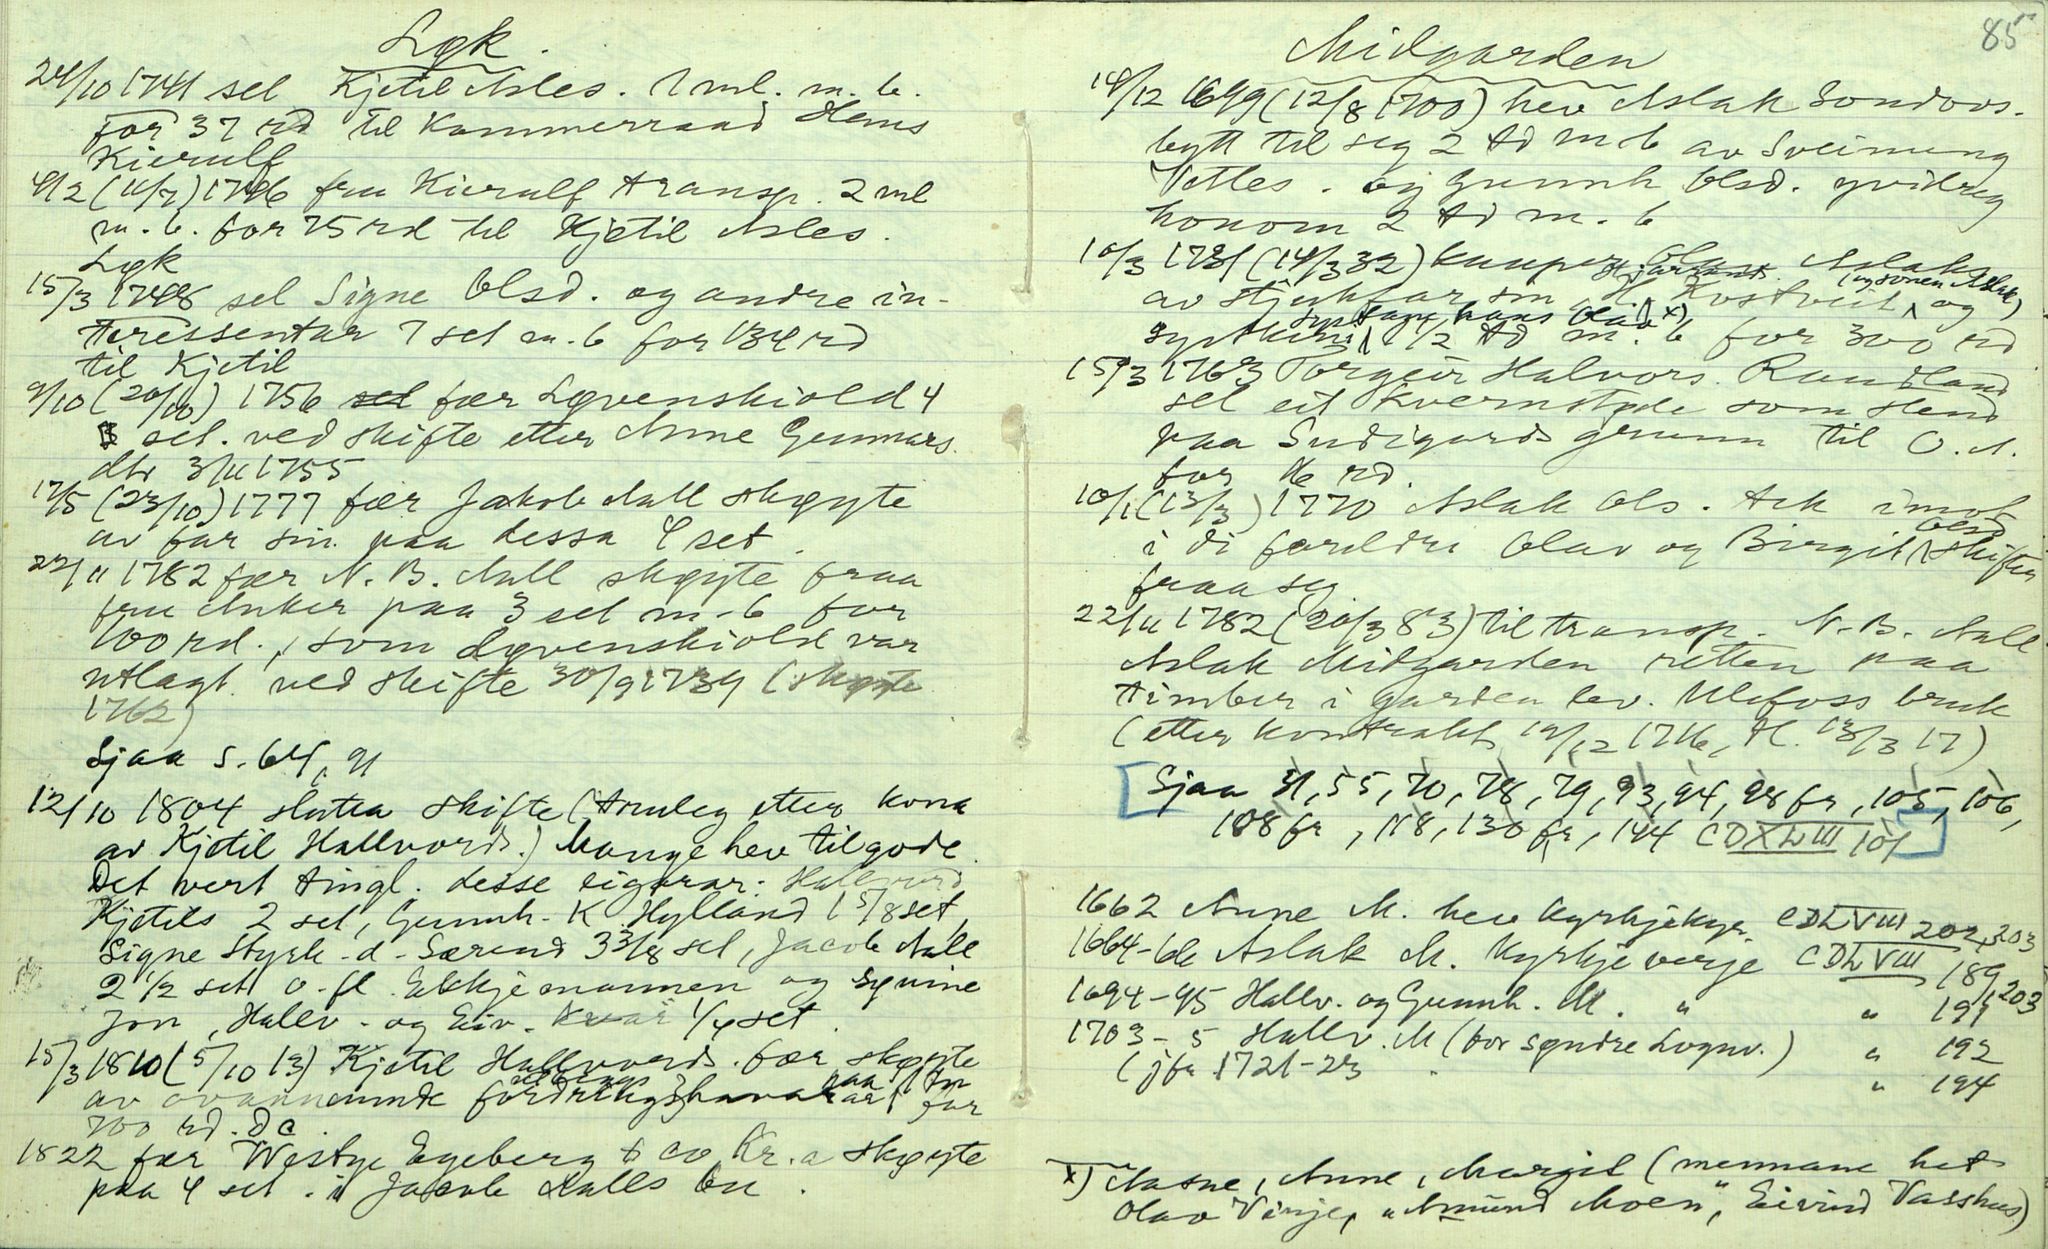 Lok.
24/10 1741 sel Kjetil Asles. 1 ml. m. b.
for 37 rd til Kammerraad Hans
Kierulf
4/2 (11/7) 1746 fru Kierulf transp. 2 ml
m. b. for 75 rd til Kjetil Asles.
Lok
15/3 1748 sel Signe Olsd. og andre in-
teressentar 7 set m. b for 134 rd
til Kjetil
9/10 (20/10) 1756 fær Løvenskiold 4
set. ved skifte etter Anne Gunnars.
dtr 3/11 1755
17/5 (23/10) 1777 fær Jakob Aall skøyte
av far sin paa dessa 4 set.
22/11 1782 fær N. B. Aall skøyte fraa
fru Anker paa 3 set m-b for
100 rd., som Løvenskiold var
utlagt ved skifte 30/9 1739 (skøyte
1762)
Sjaa s. 64, 91
12/10 1804 slutta skifte (Armleg etter kona
av Kjetil Hallvords.) Mange hev tilgode.
Det vert tingl. desse eigarar: Hallvord
Kjetils 2 set, Gunnh. K. Hylland 1 5/8 set,
Signe Styrk-d. Særend 3 3/8 set, Jacob Aall
2 1/2 set o. fl. Ekkjemannen og synine
Jon, Hallv. og Eiv. kvar 1/4 set.
15/3 1810 (5/10 13) Kjetil Hallvords. fær skøyte
av ovannemnde fordringshavarar for
700 rd. d c.
1822 fær Westye Egeberg & co Kr.a skøyte
paa 4 set. i Jacob Aalls bu.
85
Midgarden
14/12 1699 (12/8 1700) hev Aslak Sondovs.
bytt til seg 2 td m b av Sveinung
Vetles. og Gunnh Olsd. gvidrug
honom 2 td m. b
10/3 1731 (14/3 32) kauper Olav Aslaks.
av Styrkfar sin H. Kostveit (og sonen Aslak) og
syskini systrane hans Olav x) 1/2 td m. b for 300 rd
15/3 1763 Torgeir Halvors. Rundland
sel eit kvernstøde som stend
paa Sudigards grunn til O. A.
for 16 rd.
10/1 (13/3) 1770 Aslak Ols. tek imot
i di foreldri Olav og Birgit Olsd skifter
fraa seg
22/11 1782 (20/3 83) til transp. N. B. Aall
Aslak Midgarden retten paa
timber i garden lev. Ulefoss bruk
(etter kontrakt 19/12 1716, tl. 13/3 17)
Sjaa 31, 55, 70, 78, 79, 93, 94, 98 fr, 105, 106,
108 fr, 118, 130 fr, 144 CDXLIII 101
1662 Anne M. hev kyrkjekyr. CDLVIII 202, 203
1664-66 Aslak M. kyrkjeverje CDLVIII 189, 203
1694-95 Hallv. og Gunnh. M. " " 191
1703-5 Hallv. M (for syndre Lognv.) " 192
(jfr 1721-23 " 194
x) Aasne, Anne, Margit (mennane het
Olav Vinje, "Amund Moen", Eivind Vasshus)